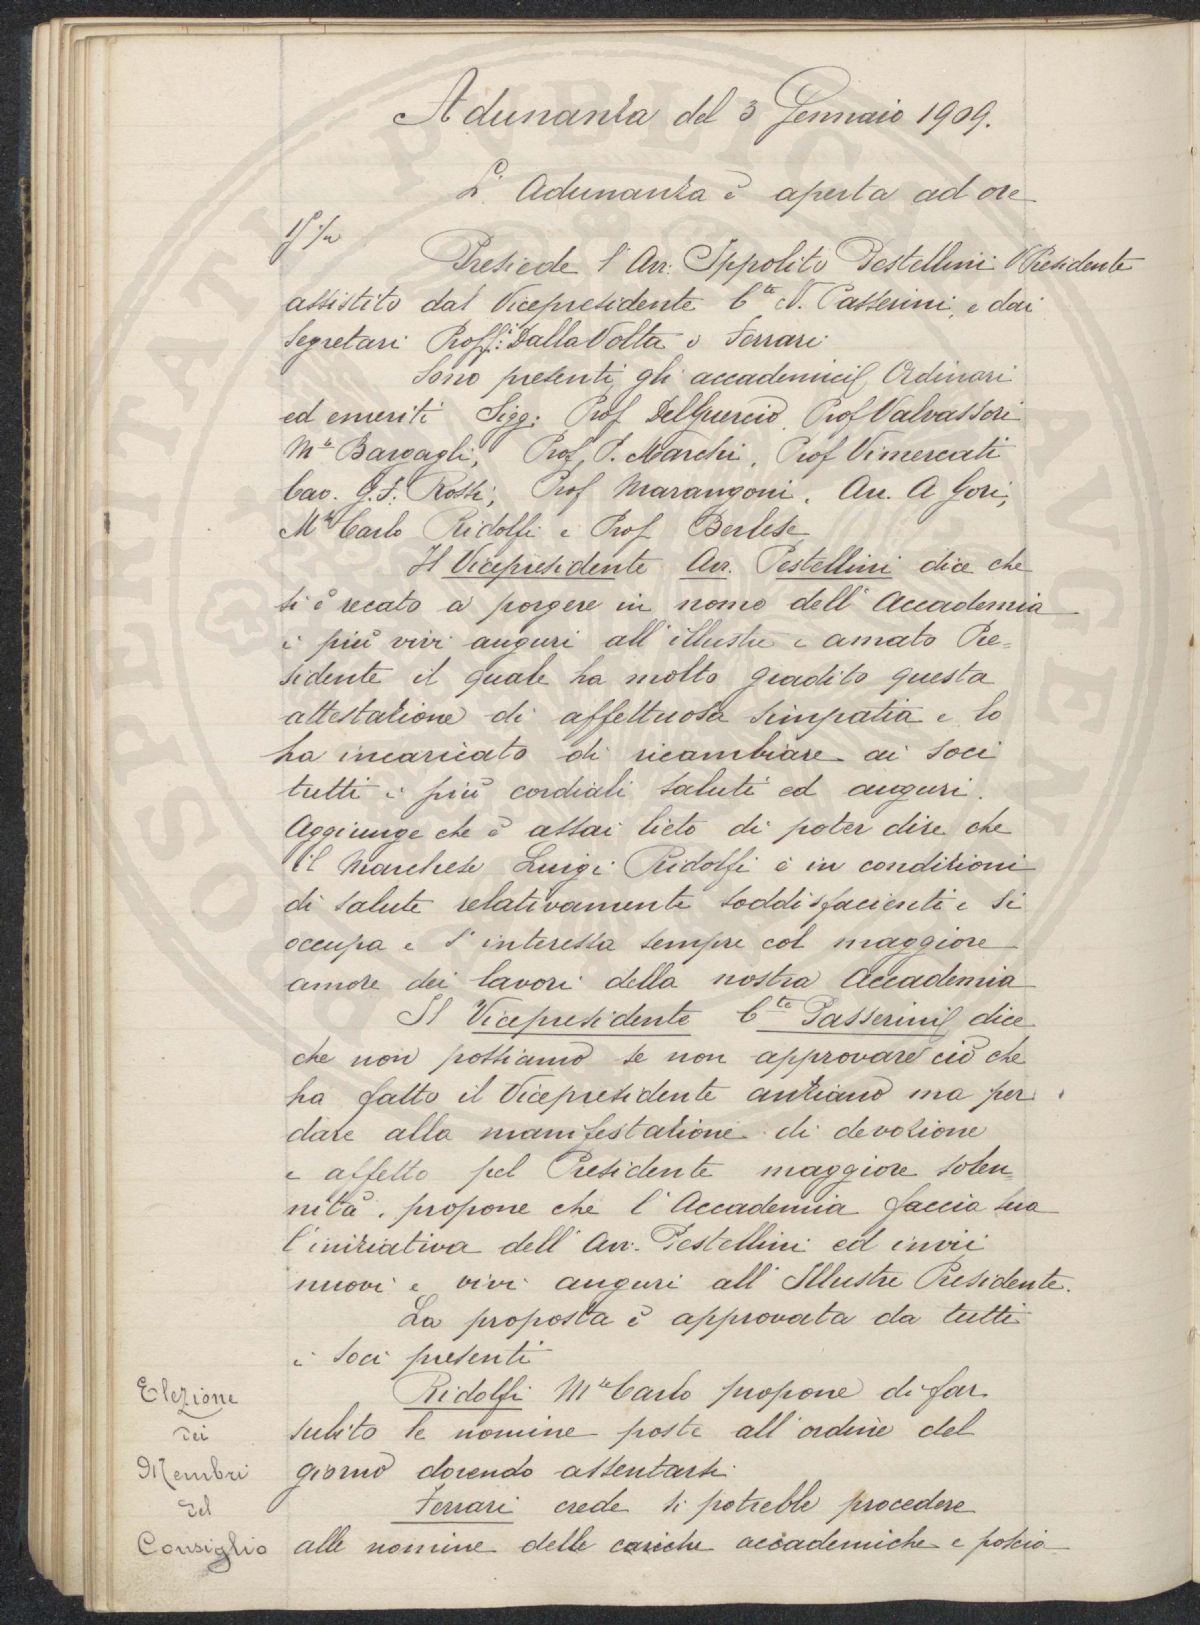 Adunanza del 3 Gennaio 1909.
L'Adunanza è aperta ad ore
Presiede l'Avv. Ippolito Pestellini VPresidente
assistito dal Vicepresidente Cte N. Passerini, e dai
Segretari Proff:i Dalla Volta e Ferrari
Sono presenti gli accademici Ordinari
ed emeriti Sigg: Prof Del Guercio, Prof Valvassori
Mse Bargagli, Prof. P. Marchi, Prof Vimercati
Cav. G.F. Rossi, Prof Marangoni, Avv. A Gori,
Mse Carlo Ridolfi e Prof Berlese
Il Vicepresidente Avv. Pestellini dice che
si è recato a porgere in nome dell'Accademia
i più vivi auguri all'illustre e amato Pre=
sidente il quale ha molto gradito questa
attestazione di affettuosa simpatia e lo
ha incaricato di ricambiare ai soci
tutti i più cordiali saluti ed auguri.
Aggiunge che è assai lieto di poter dire che
il Marchese Luigi Ridolfi è in condizioni
di salute relativamente soddisfacienti e si
occupa e s'interessa sempre col maggiore
amore dei lavori della nostra Accademia
Il Vicepresidente Cte Passerini dice
che non possiamo se non approvare ciò che
ha fatto il Vicepresidente anziano ma per
dare alla manifestazione di devozione
e affetto pel Presidente maggiore solen
nità, propone che l'Accademia faccia sua
l'iniziativa dell'Avv. Pestellini ed invii
nuovi e vivi auguri all'Illustre Presidente.
La proposta è approvata da tutti
i soci presenti
Elezione
dei
Membri
del
Consiglio
Ridolfi Mse Carlo propone di far
subito le nomine poste all'ordine del
giorno dovendo assentarsi
Ferrari crede si potrebbe procedere
alle nomine delle cariche accademiche e poscia